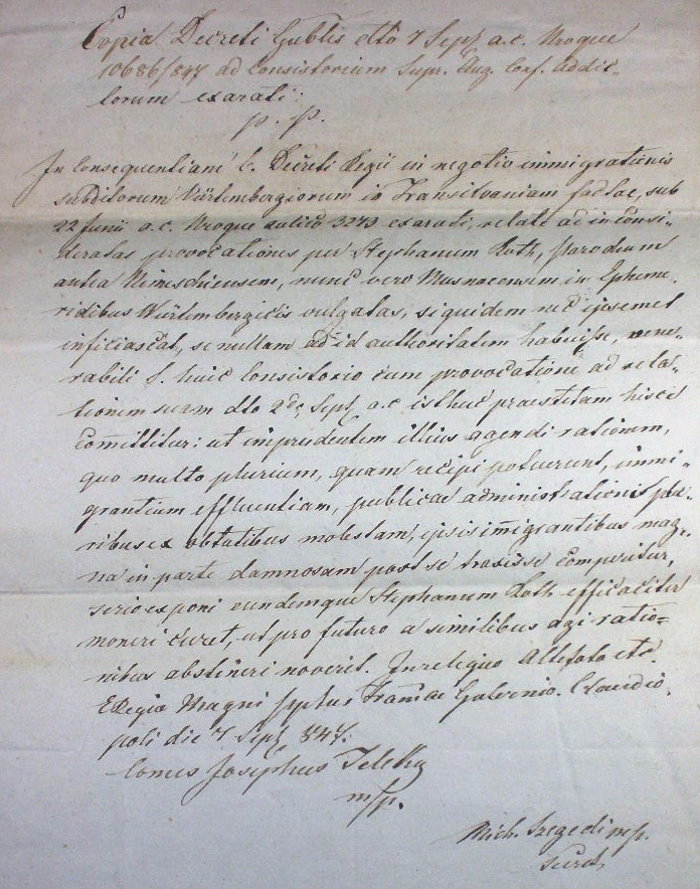 Copia Decreti Gublis dtto 7 Sept a.c. Nroque
10686/847 ad Consistorium Supr. Aug. Conf. addic-
torum exarati:
p. p.
In consequentiam b. Decreti Regii in negotio immigrationis
subditorum Würtembergiorum in Transilvaniam factae, sub
22 Junii a.c. Nroque aulico 3243 exarati, relate ad inconsi-
deratas provocationes per Stephanum Roth, Parochum
antea Nimeschiensem, nunc vero Musnacensem in Epheme-
ridibus Würtembergicis vulgatas, siquidem nec ipsemet
inficiascat, se nullam ad id authoritatem habuisse, vene-
rabili S. huic Consistorio cum provocatione ad rela-
tionem suam dto 2da Sept a.c. isthuc praestitam hisce
Committitur: ut imprudentem illius agendi rationem,
quo multo plurium, quam recipi potuerunt, immi-
grantium effluentiam, publicae administrationis plu-
ribus ex obtatibus molestam, ipsis immigrantibus mag-
na in parte damnosam post se traxisse comperitur,
serio exponi eundemque Stephanum Roth efficaciter
moneri curet, ut pro futuro a similibus agi ratio-
nibus abstineri noverit. In reliquo Altefata etc.
E Regio Magni Pptus Tranniae Gubernio. Claudio-
poli die 7 Sept 847.
Comes Josephus Teleky
m/p.
Mich. Szegedi mp.
Secret.